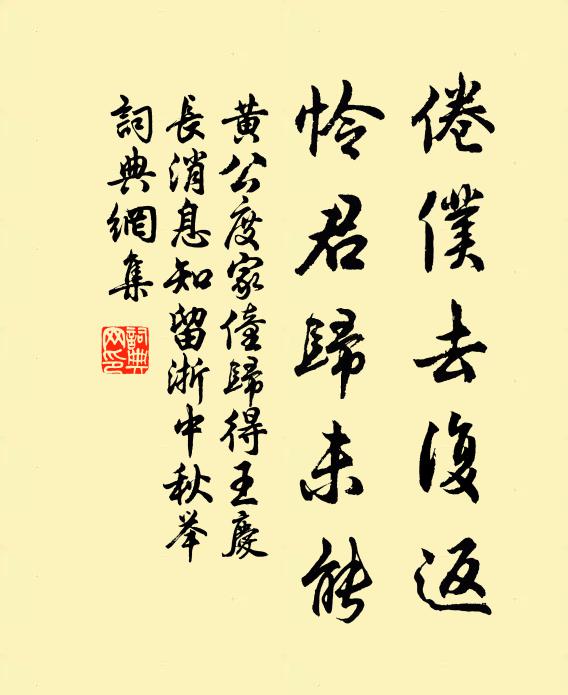 倦僕去復返
怜君歸未能
黄公度家僮歸得王慶
長消息知留浙中秋举
詞典網集
詞典
网印